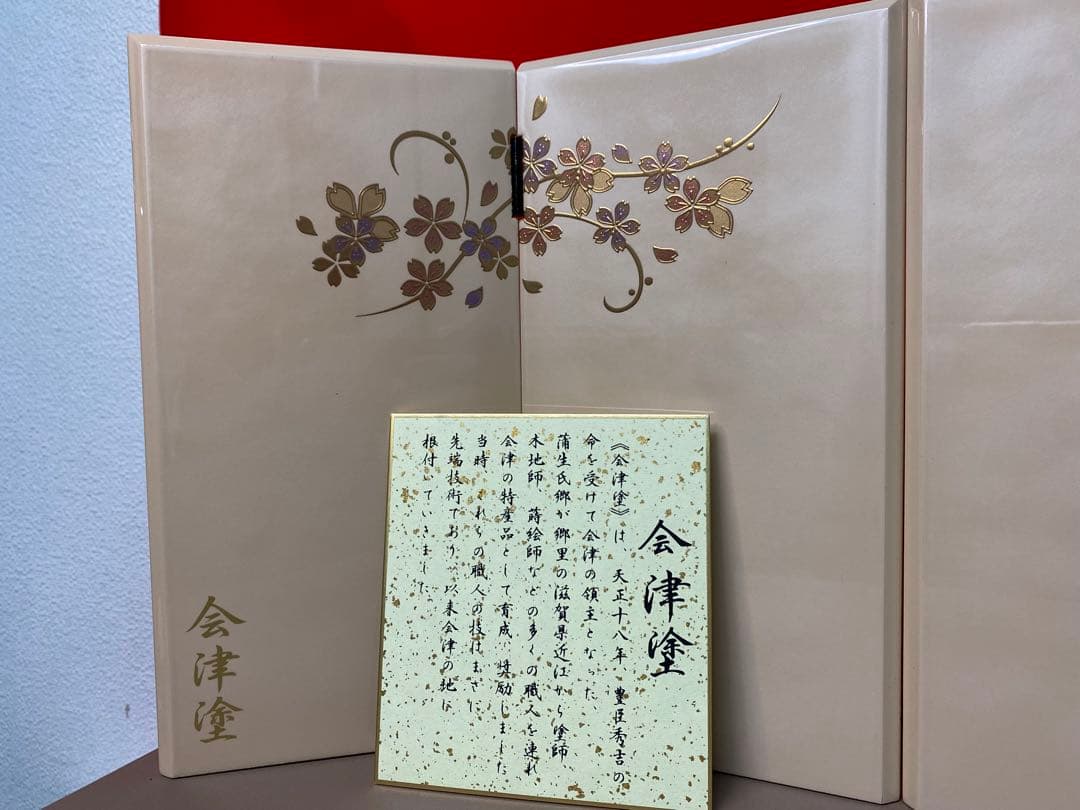 会津塗
《会津塗》は、天正十八年、豊臣秀吉の
命を受けて会津の領主となった、
蒲生氏郷が郷里の滋賀県近江から塗師
木地師、蒔絵師などの多くの職人を連れ
会津の特産品として育成、奨励しました
当時、これらの職人の技はまさに
先端技術であり、以来会津の地に
根付いていきました
会津塗